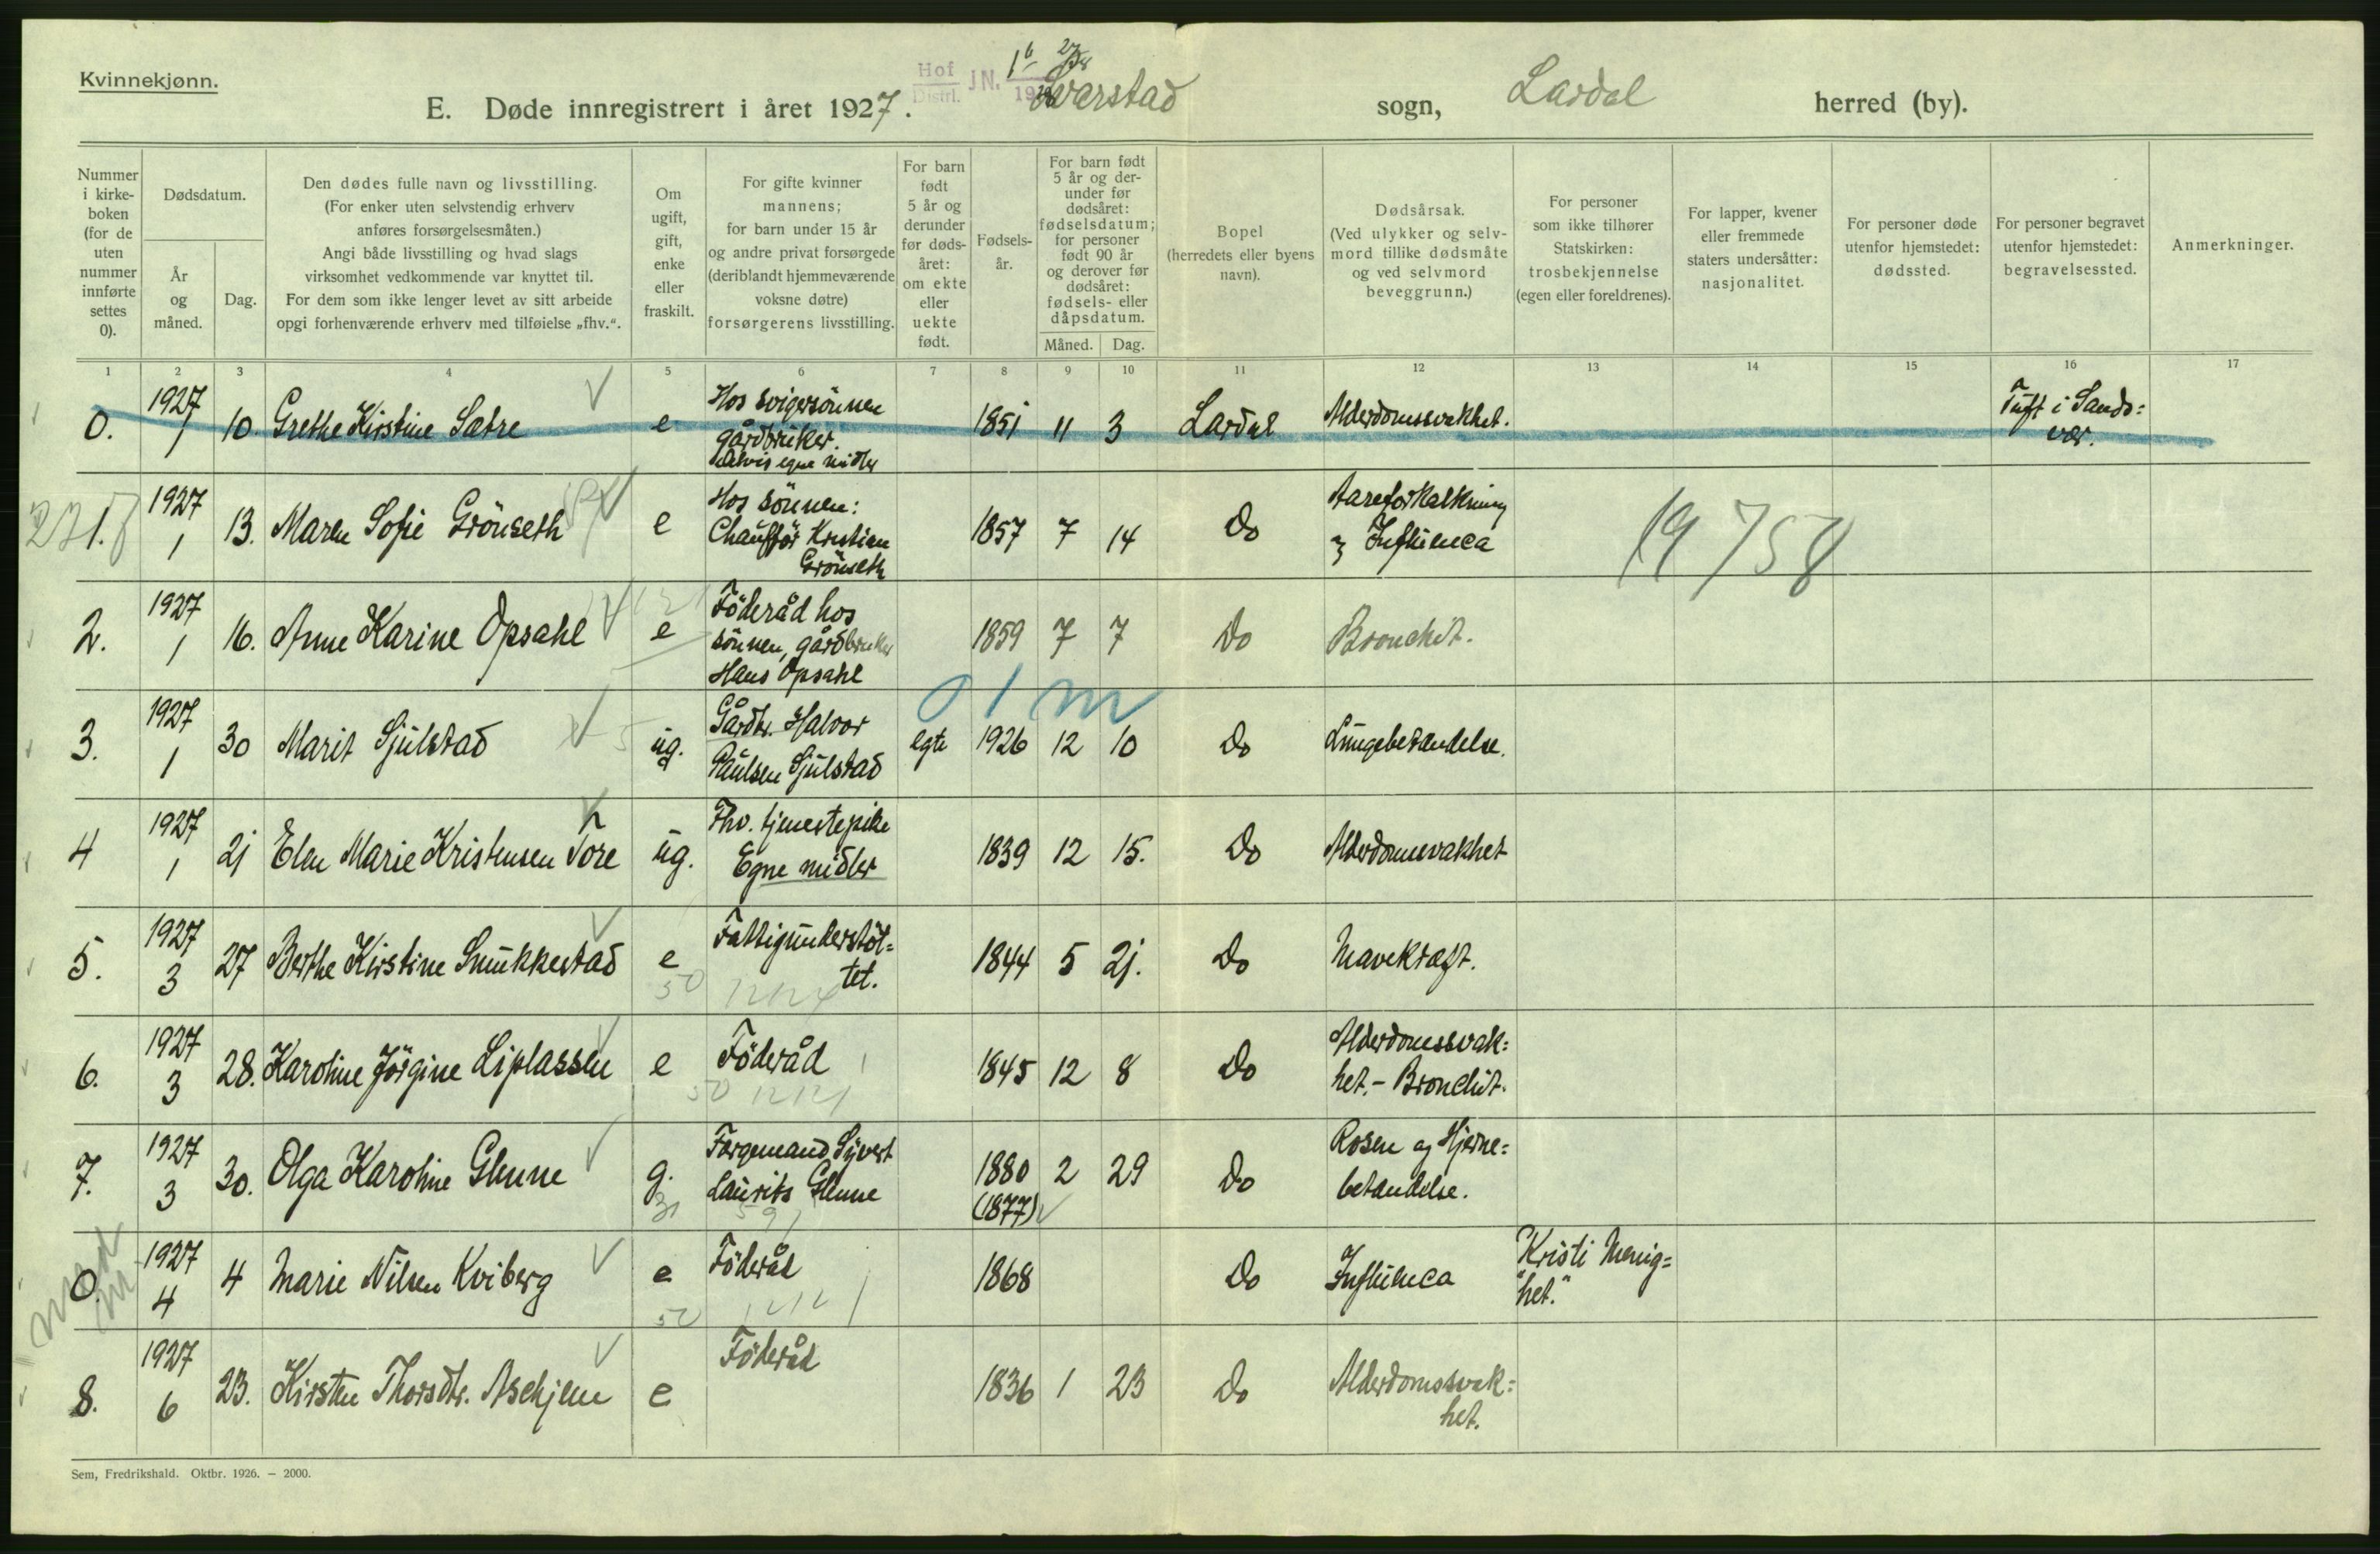 Kvinnekjønn.
E. Døde innregistrert i året 1927. Svarstad sogn, Lardal herred (by).
Hof Distri. JN.
Nummer i kirke-boken (for de uten nummer innførte settes 0).
Dødsdatum.
År og måned.
Dag.
Den dødes fulle navn og livsstilling.
(For enker uten selvstendig erhverv
anføres forsørgelsesmåten.)
Angi både livsstilling og hvad slags
virksomhet vedkommende var knyttet til.
For dem som ikke lenger levet av sitt arbeide
opgi forhenværende erhverv med tilføielse „fhv.“.
Om ugift, gift, enke eller fraskilt.
For gifte kvinner
mannens;
for barn under 15 år
og andre privat forsørgede
(deriblandt hjemmeværende
voksne døtre)
forsørgerens livsstilling.
For barn født 5 år og derunder før døds-året: om ekte eller uekte født.
Fødsels-år.
For barn født
5 år og der-
under før
dødsåret:
fødselsdatum;
for personer
født 90 år
og derover før
dødsåret:
fødsels- eller
dåpsdatum.
Måned. Dag.
Bopel
(herredets eller byens
navn).
Dødsårsak.
(Ved ulykker og selv-
mord tillike dødsmåte
og ved selvmord
beveggrunn.)
For personer
som ikke tilhører
Statskirken:
trosbekjennelse
(egen eller foreldrenes).
For lapper, kvener
eller fremmede
staters undersåtter:
nasjonalitet.
For personer døde
utenfor hjemstedet:
dødssted.
For personer begravet
utenfor hjemstedet:
begravelsessted.
Anmerkninger.
1 2 3 4 5 6 7 8 9 10 11 12 13 14 15 16 17
0. 1927 1 10. Grethe Kirstine Sætre e Hos svigersönnen
gårdbruker.
Delvis egne midler
1851 11 3 Lardal Alderdomssvakhet. Tuft i Sands=
vær.
1. 1927 1 13. Maren Sofie Grönseth e Hos sönnen:
Chaufför Kristian
Grönseth
1857 7 14 Do Aareforkalkning
Influenca
19758
2. 1927 1 16. Anne Karine Opsahl e Föderåd hos
sönnen, gårdbruker
Hans Opsahl
1859 7 7 Do Bronchit.
01m
3. 1927 1 30 Marit Sjulstad ug. Gårdbr. Halvor
Paulsen Sjulstad
egte 1926 12 10 Do Lungebetændelse.
4 1927 1 21 Elen Marie Kristensen Tore ug. Fhv. tjenestepike
Egne midler
1839 12 15. Do Alderdomssvakhet
5. 1927 3 27 Berthe Kirstine Smukkestad e Fattigunderstöt=
tet.
1844 5 21. Do Mavekræft.
6. 1927 3 28. Karoline Jörgine Liplassen e Föderåd
1845 12 8 Do Alderdomssvak=
het.- Bronchit.
7. 1927 3 30. Olga Karoline Glenne g. Forgemand Syvert
Laurits Glenne
1880 2 29 Do Rosen og Hjerne=
betændelse.
(1877)
0. 1927 4 4 Marie Nilsen Kviberg e Föderåd
1868 Do Influenca "Kristi Menig=
het."
8. 1927 6 23. Kirsten Thorsdtr. Askjem e Föderåd
1836 1 23 Do Alderdomssvak=
het.
Sem, Fredrikshald. Oktbr. 1926. — 2000.